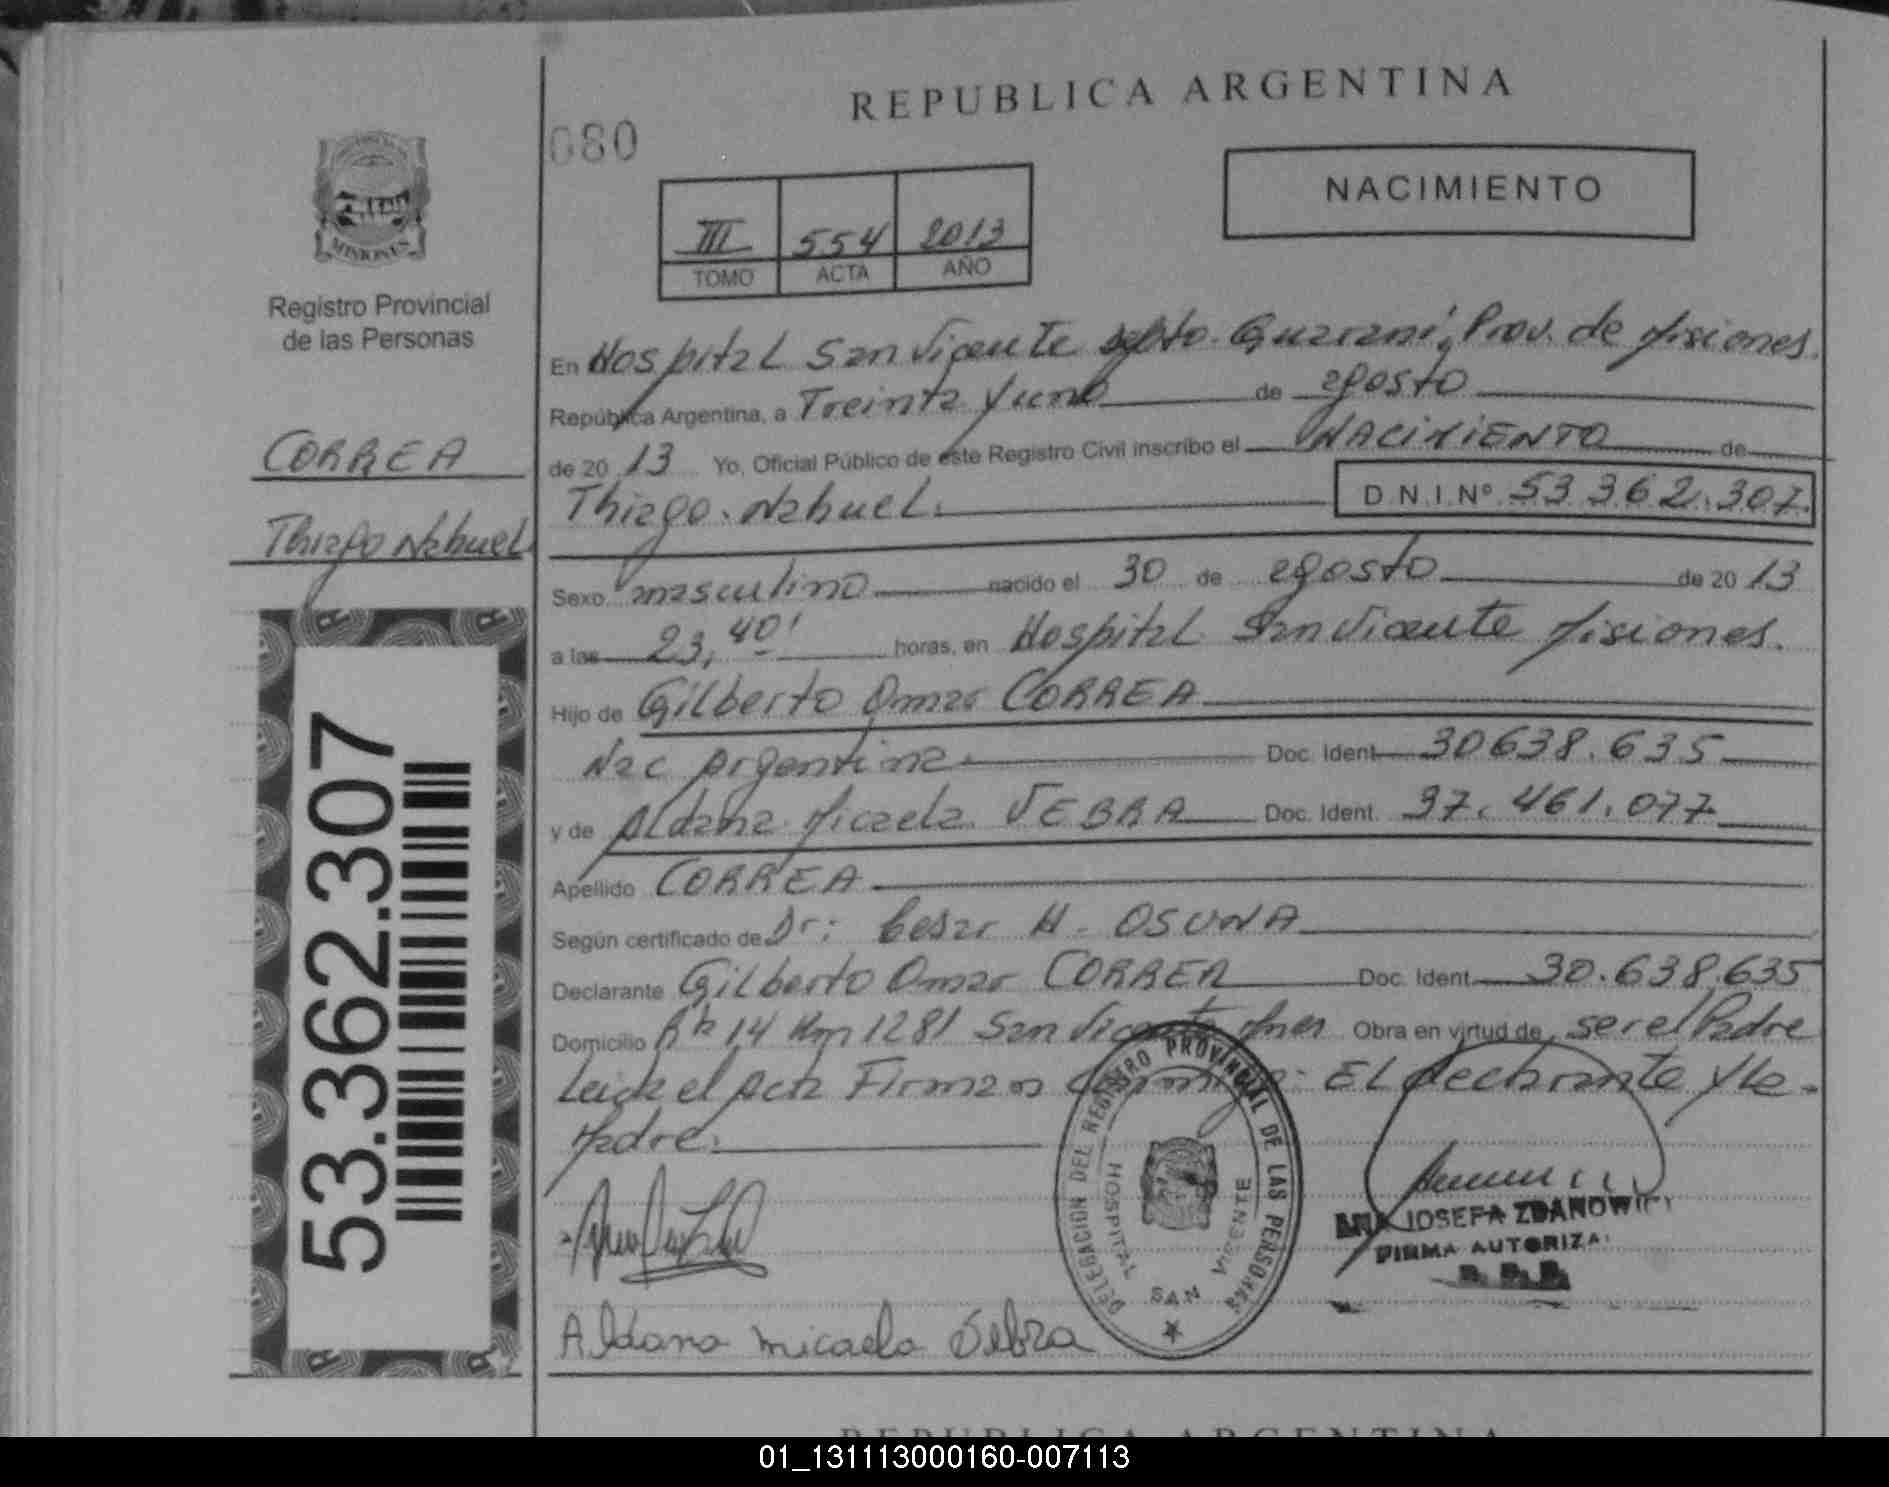 REPUBLICA ARGENTINA
080
NACIMIENTO
III 554 2013
TOMO ACTA AÑO
MISIONES
Registro Provincial
de las Personas
CORREA
Thiago Nahuel
53.362.307
En Hospital San Vicente Guaraní, Prov. de Misiones.
República Argentina, a Treinta y uno de agosto
de 20 13 Yo, Oficial Público de este Registro Civil inscribo el NACIMIENTO de
Thiago Nahuel. D.N.I.Nº 53.362.307.
Sexo masculino nacido el 30 de agosto de 20 13
a las 23,40' horas, en Hospital San Vicente Misiones.
Hijo de Gilberto Omar CORREA
Nac Argentina Doc. Ident. 30638.635
y de Aldana Micaela VEBRA Doc. Ident. 37.461.077
Apellido CORREA
Según certificado de Dr: Cesar H. OSUNA
Declarante Gilberto Omar CORREA Doc. Ident. 30.638.635
Domicilio 14 Km 1281 San Vicente Mnes Obra en virtud de ser el Padre
Leida el Acta Firman conmigo: El declarante y la
Madre.
DELEGACION DEL REGISTRO PROVINCIAL DE LAS PERSONAS
HOSPITAL SAN VICENTE
JOSEFA ZDANOWICZ
FIRMA AUTORIZA
Aldana micaela Vebra
REPUBLICA ARGENTINA
01_131113000160-007113